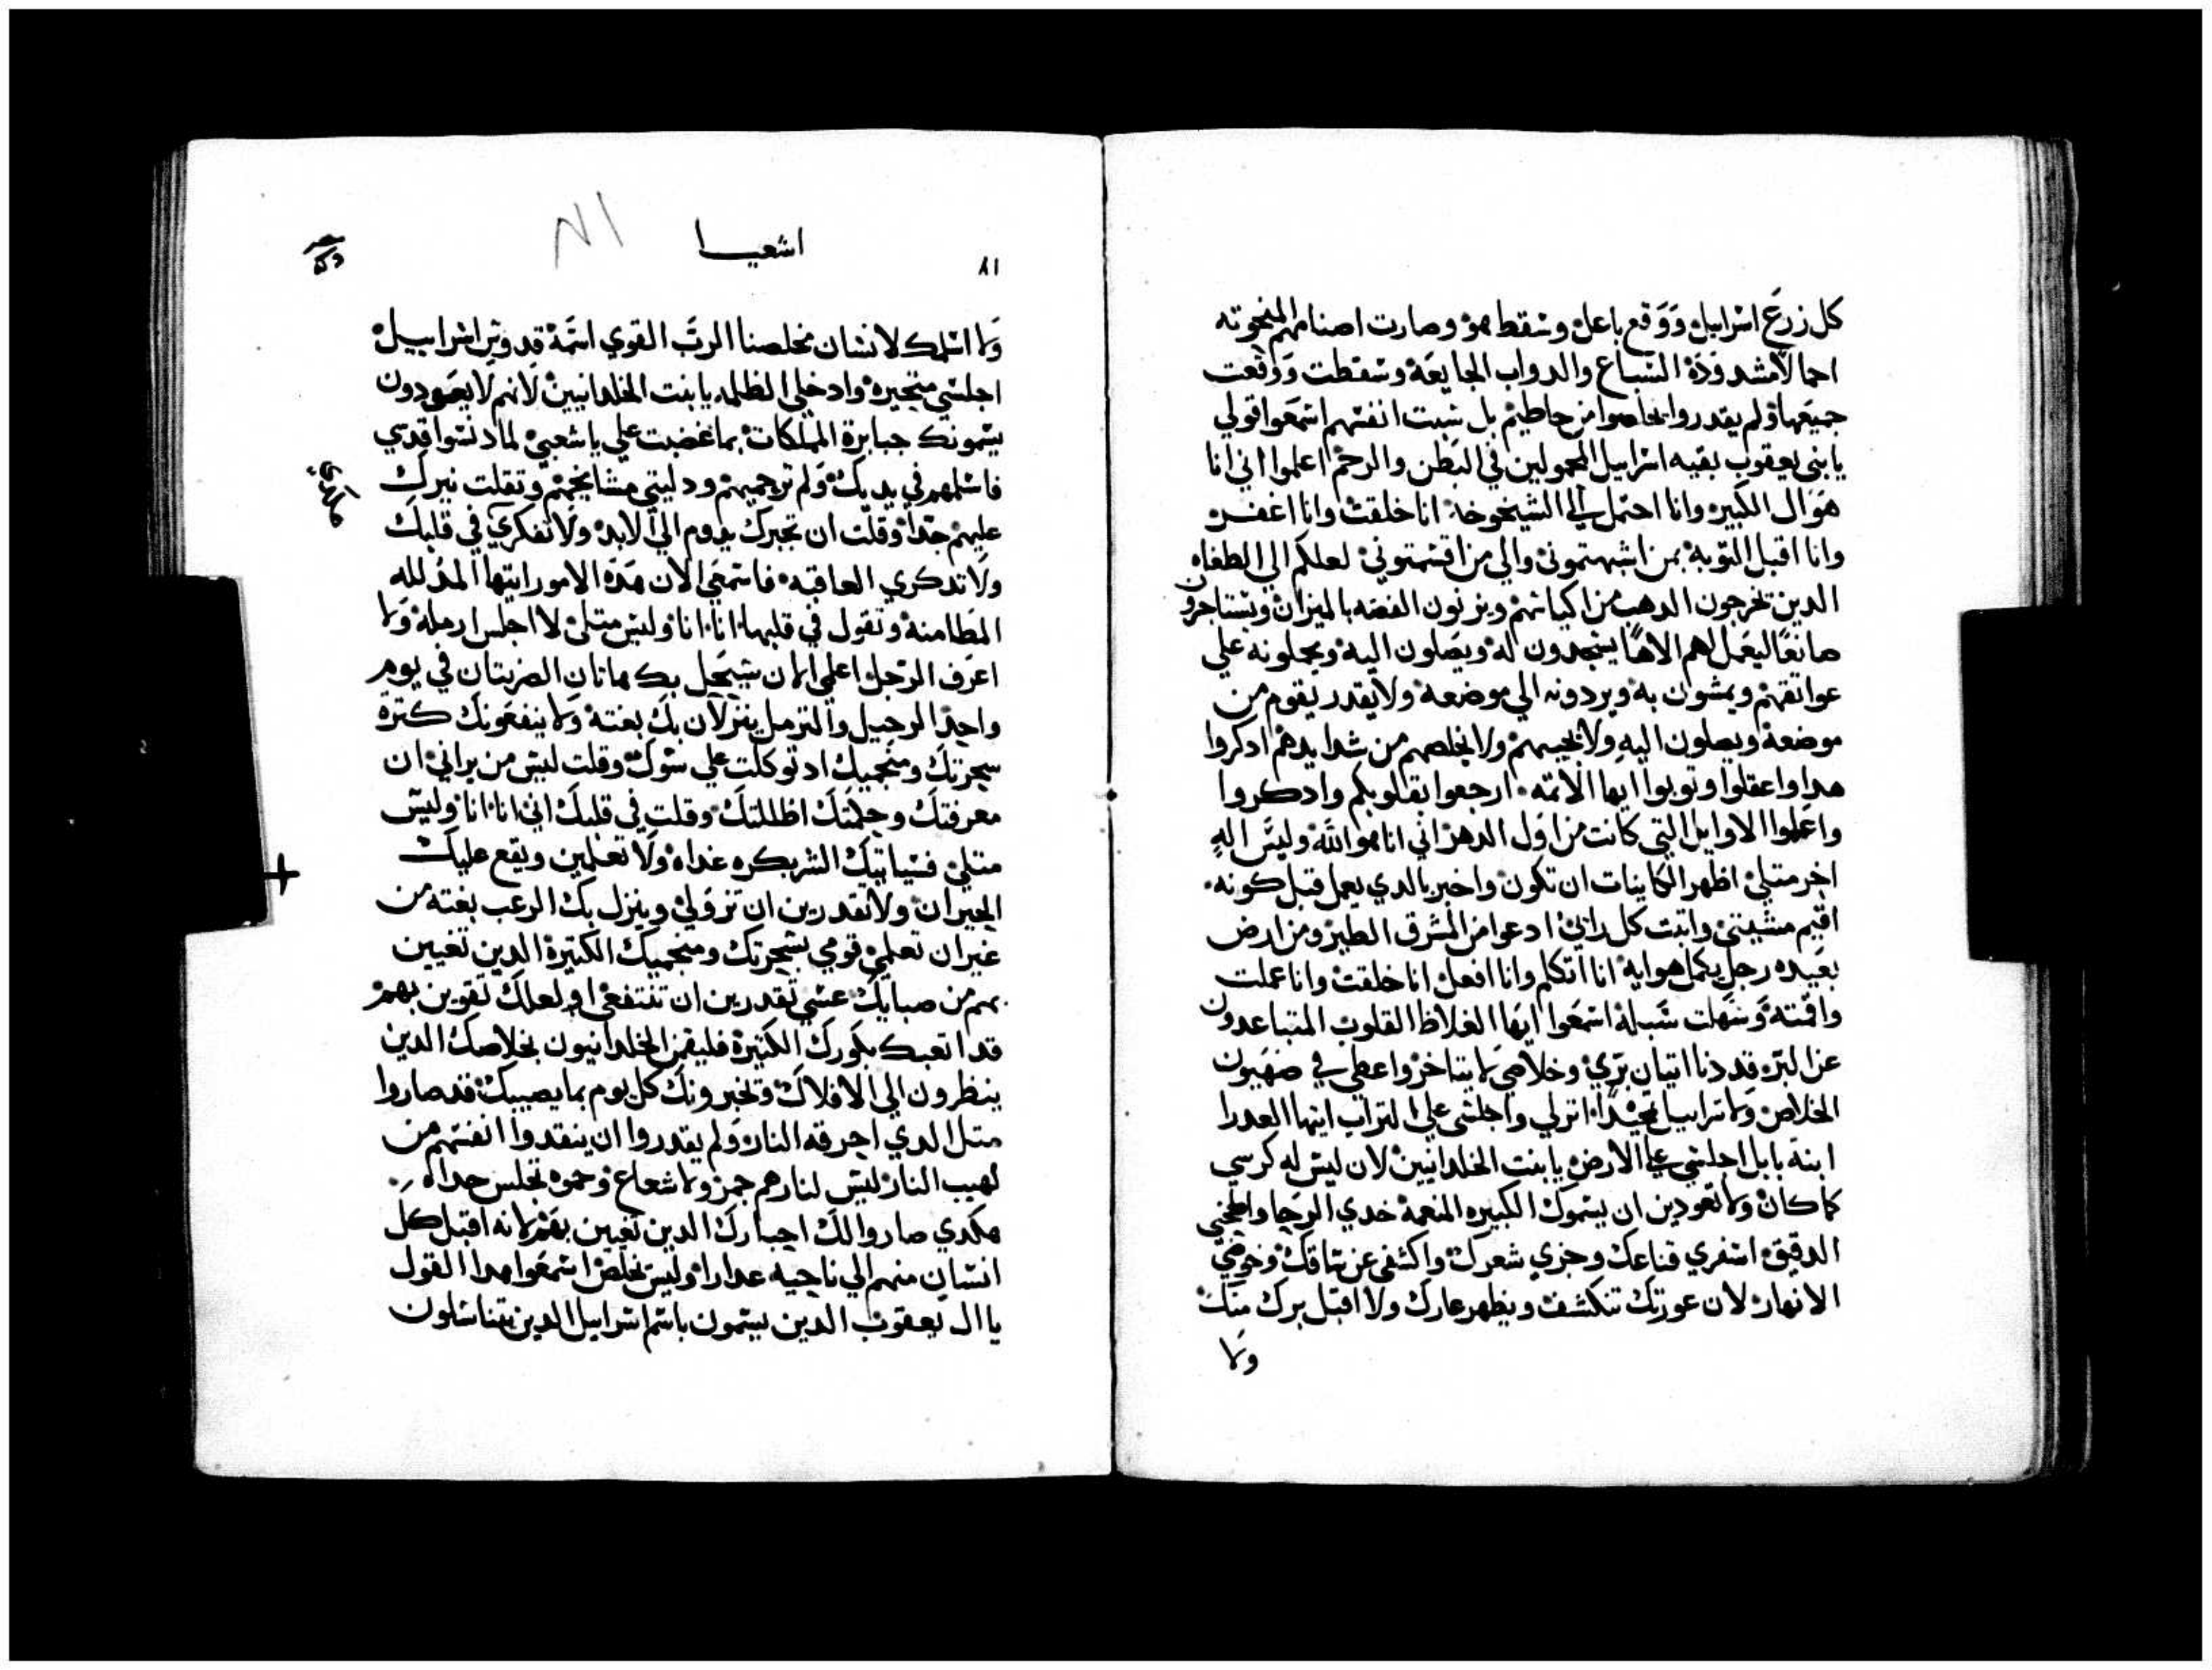 كل زرع اسراييل ووقع باعل وسقط هو وصارت اصنامهم المنحوته
احمالا مشدوده السباع والدواب الجايعه وسقطت ووقعت
جميعها ولم يقدروا يخلصوا من حاطهم بل سبت انفسهم اسمعوا قولي
يا بني يعقوب بقيه اسراييل المحمولين في البطن والرحم اعلموا اني انا
هو الي الكبير وانا احتمل الي الشيخوخه انا خلقت وانا اغفر
وانا اقبل التوبه بمن اشبهتموني والي من اقستموني لعلكم الي الطغاه
الدين تخرجون الدهب من اكياسهم ويزنون الفضه بالميزان ويستاجرون
صانعا ليعمل لهم الاها يسجدون له ويصلون اليه ويحملونه علي
عواتقهم ويمشون به ويردونه الي موضعه ولا يقدر يقوم من
موضعه ويصلون اليه ولا يجيبهم ولا يخلصهم من شدايدهم ادكروا
هدا واعقلوا وتوبوا ايها الاتمه ارجعوا بقلوبكم وادكروا
واعملوا الاوايل التي كانت من اول الدهر اني انا هو الله وليس اله
اخر متلي اظهر الكاينات ان تكون واخبر بالدي يعمل قبل كونه
اقيم مشيتي واتبت كل رايي ادعوا من المشرق الطير ومن ارض
بعيده رجل يكمل هوايه انا اتكلم وانا افعل انا خلقت وانا عملت
واقمته وسهلت سبله اسمعوا ايها الغلاظ القلوب المتباعدون
عن البره قد دنا اتيان بري وخلاصي لا يتاخر واعطي في صهيون
الخلاص ولاسراييل مجدا انزلي واجلسي علي التراب ايتها العدرا
ابنة بابل اجلسي علي الارض يا بنت الخلدانيين لان ليس له كرسي
كما كان ولا تعودين ان يسموك الكبيره المنعمه خدي الرحا واطحني
الدقيق اسفري قناعك وجزي شعرك واكشفي عن ساقك وخوضي
الانهار لان عورتك تنكشف ويظهر عارك ولا اقبل برك منك
ولا
٨١
اشعيا
ولا اسلمك لانسان مخلصنا الرب القوي اسمه قدوس اسراييل
اجلسي متحيره وادخلي الظلمه يا بنت الخلدانيين لانهم لا يعودون
يسمونك جبابرة المملكات بما غضبت علي ياشعبي لما دنسوا قدسي
فاسلمهم في يديك ولم ترحميهم ودليتي مشايخهم وتقلت نيرك
عليهم جدا وقلت ان تجبرك يدوم الي الابد ولا تفكري في قلبك
ولا تدكري العاقبه فاسمعي الان هده الامور ايتها المدلله
المطامنه وتقول في قلبها انا انا وليس متلي لا اجلس ارمله ولا
اعرف الرحيل اعلمي الان سيحل بك هاتان الضربتان في يوم
واحد الرحيل والترمل ينزلان بك بغته ولا ينفعونك كتره
سحرتك ومنجميك اد توكلت علي سوك وقلت ليس من يراني ان
معرفتك وحكمتك اظللتك وقلت في قلبك اني انا انا وليس
متلي فسياتيك الشر بكره غداه ولا تعلمين ويقع عليك
الحيران ولا تقدرين ان تزولي وينزل بك الرعب بغته من
غير ان تعلمي قومي بسحرتك ومنجميك الكتيرة الدين تغيين
بهم من صبايك عسي تقدرين ان تنتفعي او لعلك تقوين بهم
قد اتعبك بكورك الكتيرة فليقمن الخلدانيون بخلاصك الدين
ينظرون الي الافلاك وتخبرونك كل يوم بما يصيبك قد صاروا
متل الدي احرقه النار ولم يقدروا ان ينقدوا انفسهم من
لهيب النار ليس لنارهم جمر ولا شعاع وحموه تجلس حداه
هكدي صاروا لك احبارك الدين تعيين بهم لانه اقبل كل
انسان منهم الي ناحيه عدارا وليس مخلص اسمعوا هدا القول
يا ال يعقوب الدين يسمون باسم اسراييل الدين يتناسلون